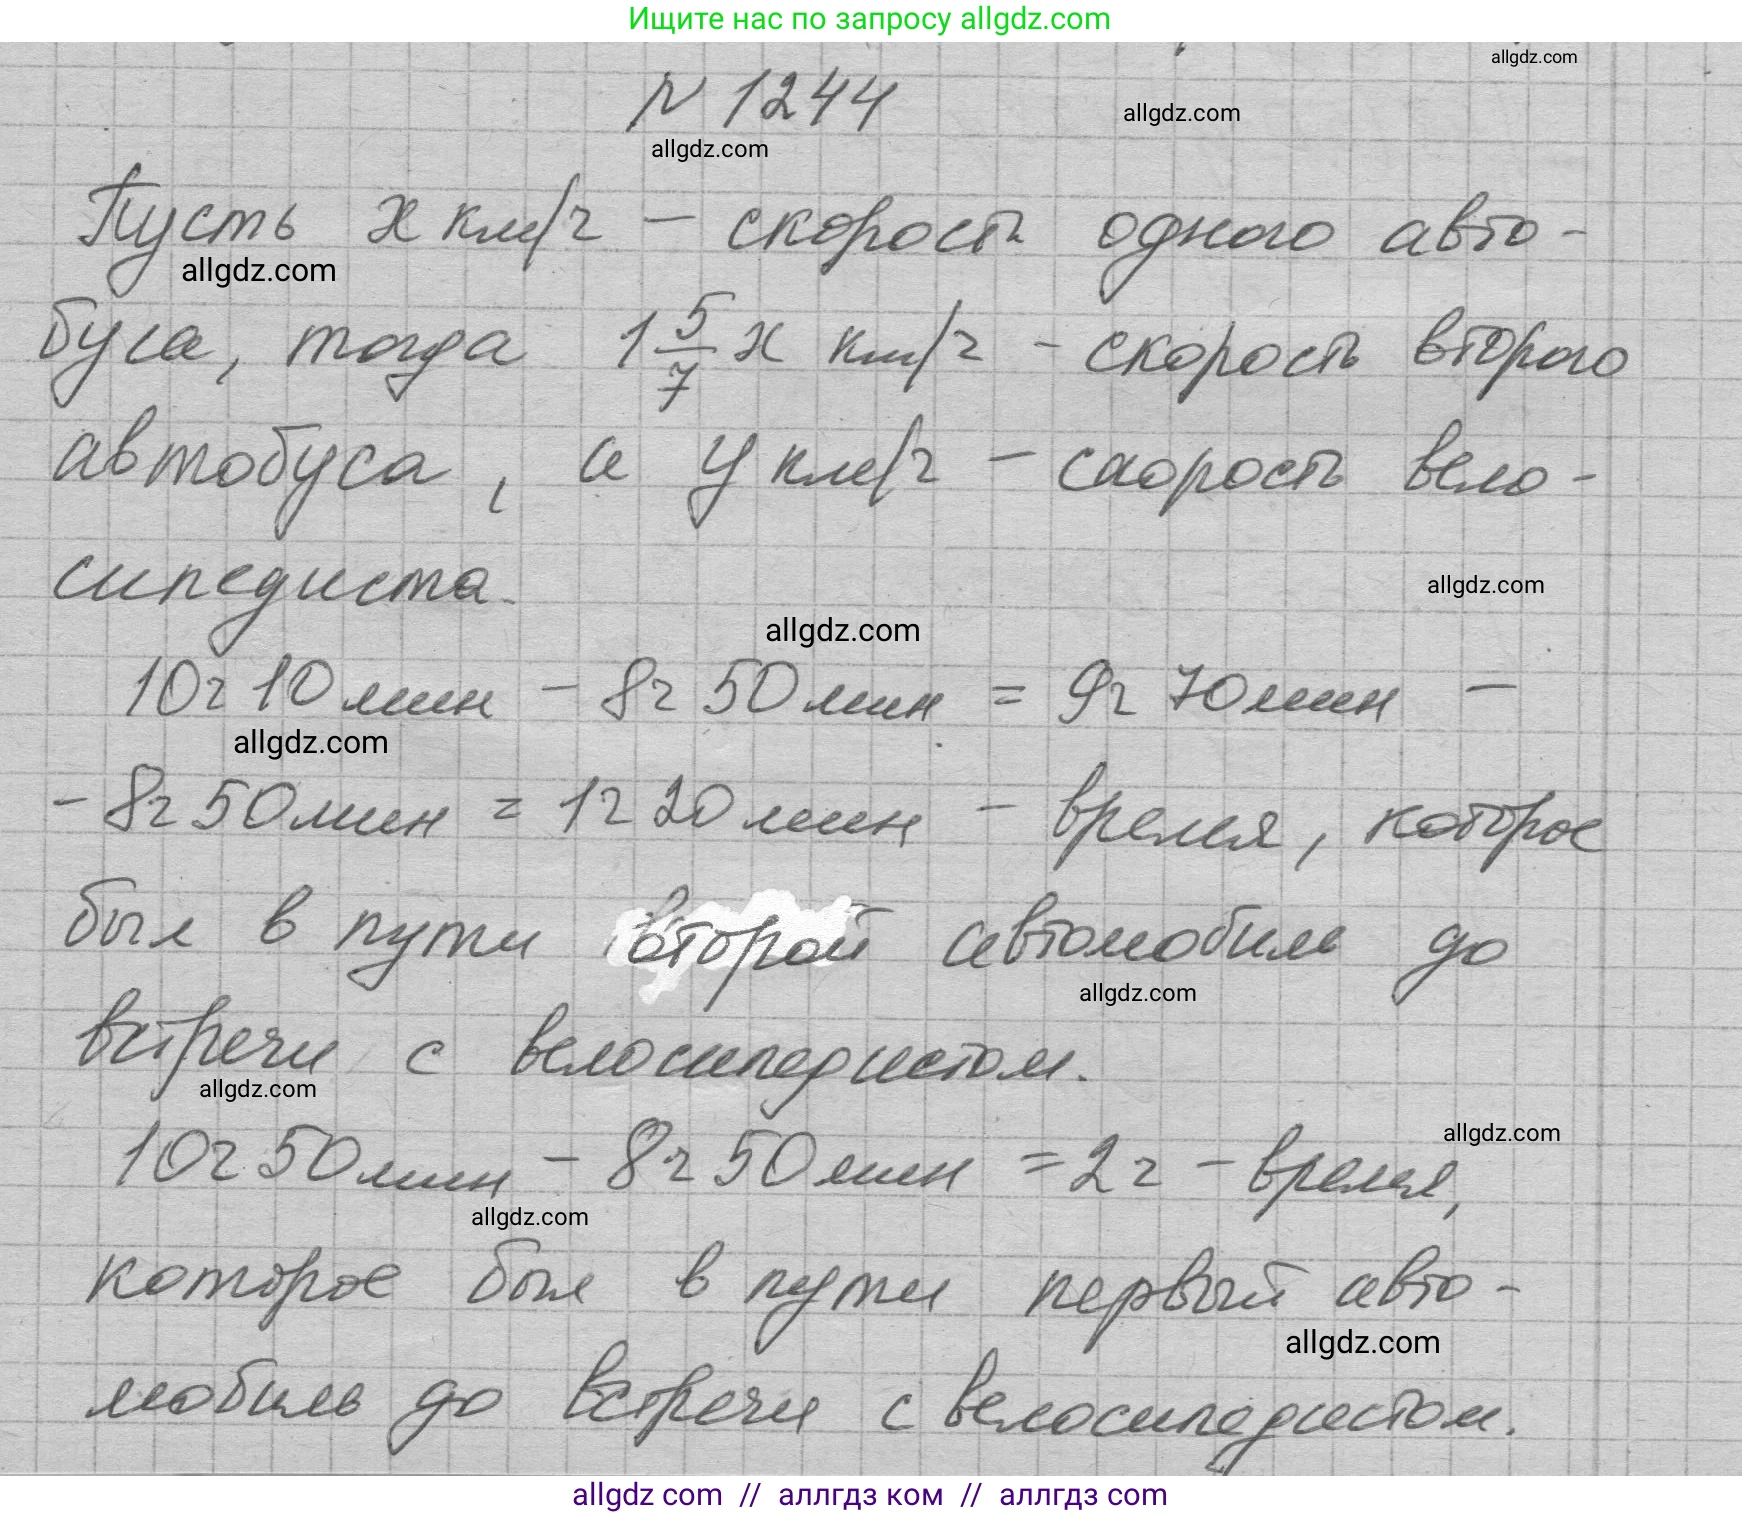 Ищите нас по запросу allgdz.com
allgdz.com
№ 1244
allgdz.com
allgdz.com
Пусть x км/ч – скорость одного авто-
allgdz.com
буса, тогда 1 5/7 x км/ч – скорость второго
автобуса, а y км/ч – скорость вело-
сипедиста.
allgdz.com
allgdz.com
10ч 10мин – 8ч 50мин = 9ч 70мин –
allgdz.com
– 8ч 50мин = 1ч 20мин – время, которое
был в пути второй автомобиль до
allgdz.com
встречи с велосипедистом.
allgdz.com
10ч 50мин – 8ч 50мин = 2ч – время,
allgdz.com
allgdz.com
которое был в пути первый авто-
allgdz.com
мобиль до встречи с велосипедистом.
allgdz com // аллгдз ком // аллгдз com